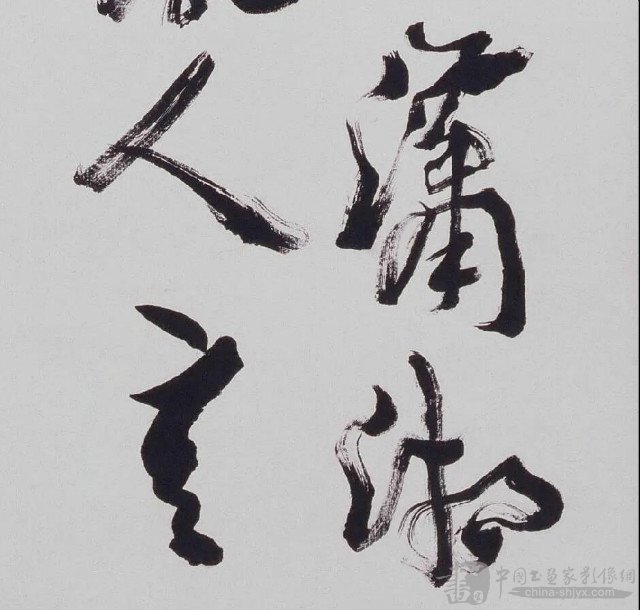 瀟湘
人言
中國书画家影像網
china-shjyx.com